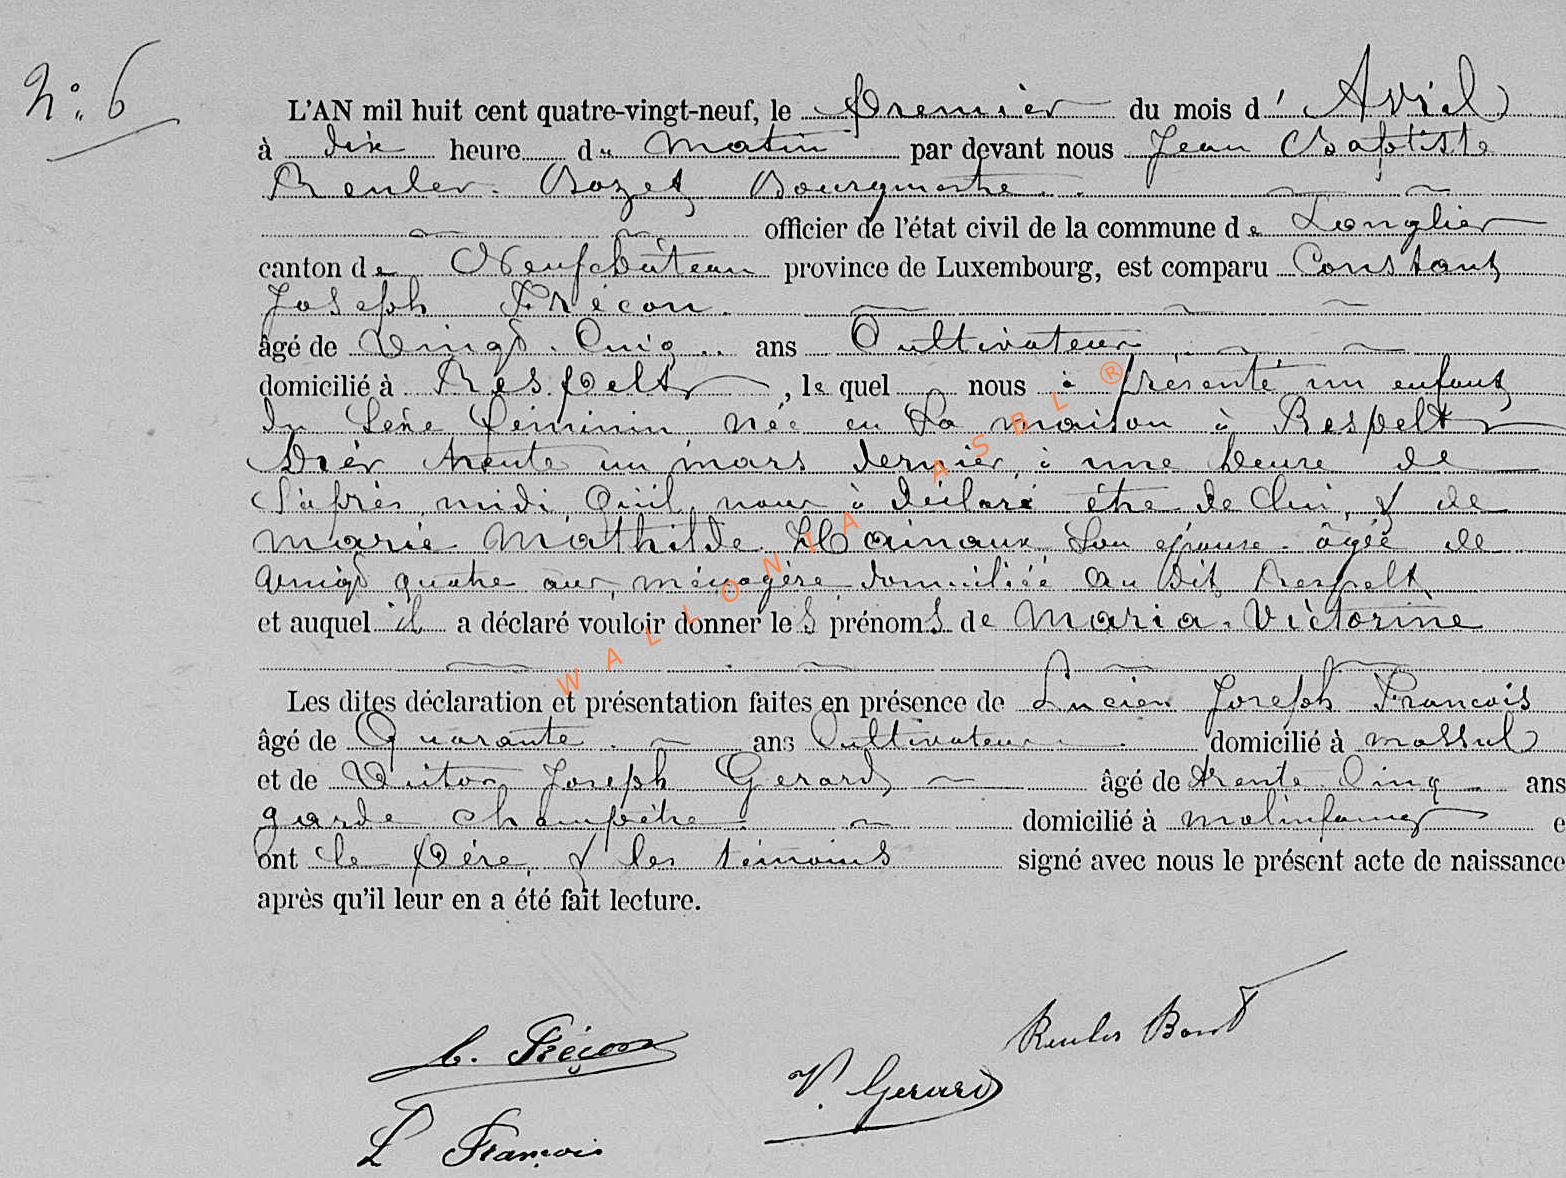 N° 6
L'AN mil huit cent quatre-vingt-neuf, le Premier du mois d' Avril
à dix heure du Matin par devant nous Jean Baptiste
Reuler Bozet Bourgmestre
officier de l'état civil de la commune de Longlier
canton de Neufchâteau province de Luxembourg, est comparu Constant
Joseph Fréçon
âgé de Vingt Cinq ans Cultivateur
domicilié à Respelt, le quel nous à présenté un enfant
du Sexe féminin, née en Sa maison à Respelt
hier trente un mars dernier, à une heure de
l'après midi, Qu'il nous à déclaré être de lui, & de
Marie Mathilde Hainaux, Son épouse âgée de
vingt quatre ans, ménagère domiciliée au dit Respelt
et auquel il a déclaré vouloir donner les prénoms de Maria Victorine
Les dites déclaration et présentation faites en présence de Lucien Joseph François
âgé de Quarante ans Cultivateur domicilié à Massul
et de Victor Joseph Gerard âgé de trente Cinq ans
garde champêtre domicilié à Molinfaing e
ont le Père, & les témoins signé avec nous le présent acte de naissance
après qu'il leur en a été fait lecture.
C. Fréçon
Reuler Bozet
V. Gerard
L François
WALLONIA ASBL ®